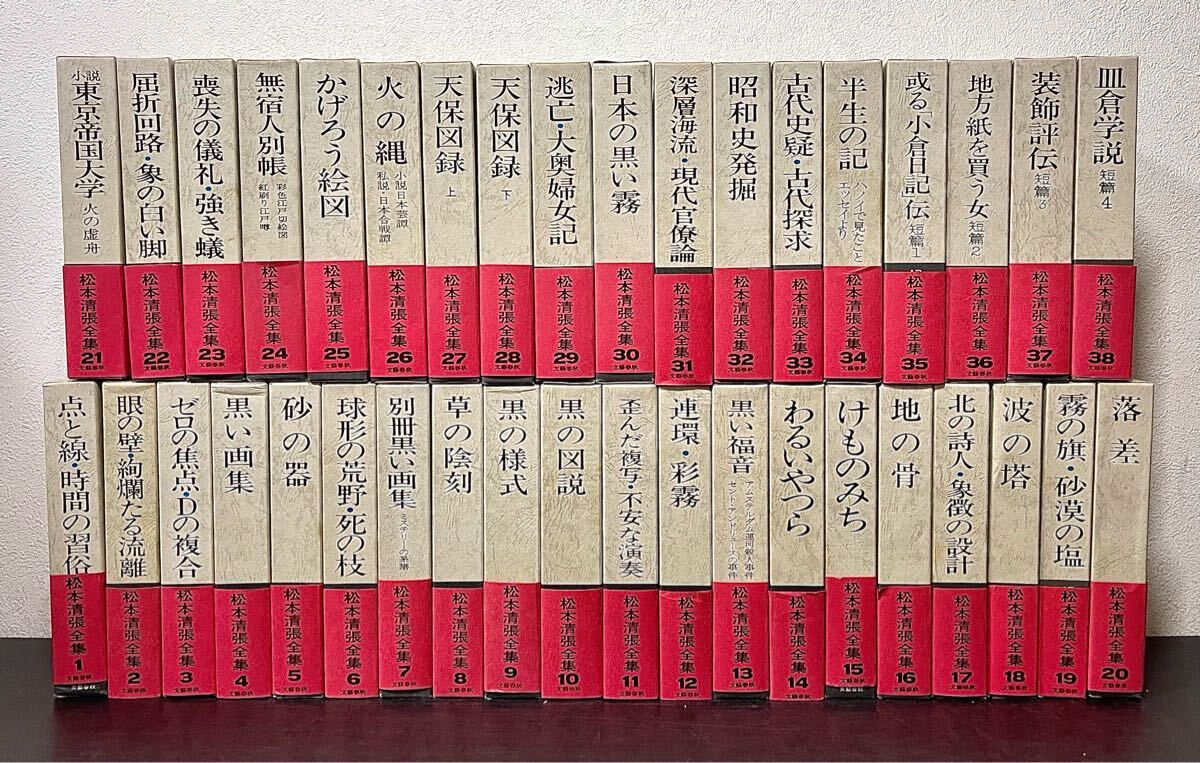 小説東京帝国大学 火の虚舟
松本清張全集 21
文藝春秋
屈折回路・象の白い脚
松本清張全集 22
文藝春秋
喪失の儀礼・強き蟻
松本清張全集 23
文藝春秋
無宿人別帳 彩色江戸切絵図 紅刷り江戸噂
松本清張全集 24
文藝春秋
かげろう絵図
松本清張全集 25
文藝春秋
火の縄 小説日本芸譚 私説・日本合戦譚
松本清張全集 26
文藝春秋
天保図録 上
松本清張全集 27
文藝春秋
天保図録 下
松本清張全集 28
文藝春秋
逃亡・大奥婦女記
松本清張全集 29
文藝春秋
日本の黒い霧
松本清張全集 30
文藝春秋
深層海流・現代官僚論
松本清張全集 31
文藝春秋
昭和史発掘
松本清張全集 32
文藝春秋
古代史疑・古代探求
松本清張全集 33
文藝春秋
半生の記 ハノイで見たこと エッセイより
松本清張全集 34
文藝春秋
或る「小倉日記」伝 短篇1
松本清張全集 35
文藝春秋
地方紙を買う女 短篇2
松本清張全集 36
文藝春秋
装飾評伝 短篇3
松本清張全集 37
文藝春秋
皿倉学説 短篇4
松本清張全集 38
文藝春秋
点と線・時間の習俗
松本清張全集 1
文藝春秋
眼の壁・絢爛たる流離
松本清張全集 2
文藝春秋
ゼロの焦点・Dの複合
松本清張全集 3
文藝春秋
黒い画集
松本清張全集 4
文藝春秋
砂の器
松本清張全集 5
文藝春秋
球形の荒野・死の枝
松本清張全集 6
文藝春秋
別冊黒い画集 ミステリーの系譜
松本清張全集 7
文藝春秋
草の陰刻
松本清張全集 8
文藝春秋
黒の様式
松本清張全集 9
文藝春秋
黒の図説
松本清張全集 10
文藝春秋
歪んだ複写・不安な演奏
松本清張全集 11
文藝春秋
連環・彩霧
松本清張全集 12
文藝春秋
黒い福音 アムステルダム運河殺人事件 セント・アンドリュースの事件
松本清張全集 13
文藝春秋
わるいやつら
松本清張全集 14
文藝春秋
けものみち
松本清張全集 15
文藝春秋
地の骨
松本清張全集 16
文藝春秋
北の詩人・象徴の設計
松本清張全集 17
文藝春秋
波の塔
松本清張全集 18
文藝春秋
霧の旗・砂漠の塩
松本清張全集 19
文藝春秋
落差
松本清張全集 20
文藝春秋